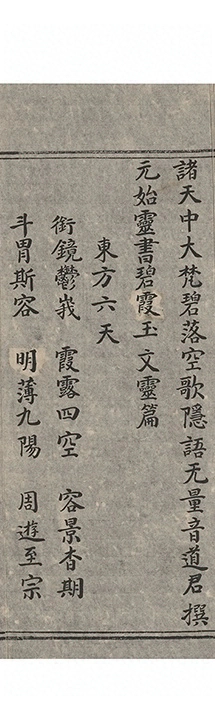 諸天中大梵碧落空歌隱語无量音道君撰
元始靈書碧霞玉文靈篇
東方六天
銜鏡鬱峩 霞露四空 容景杳期
斗胃斯容 明薄九陽 周遊至宗